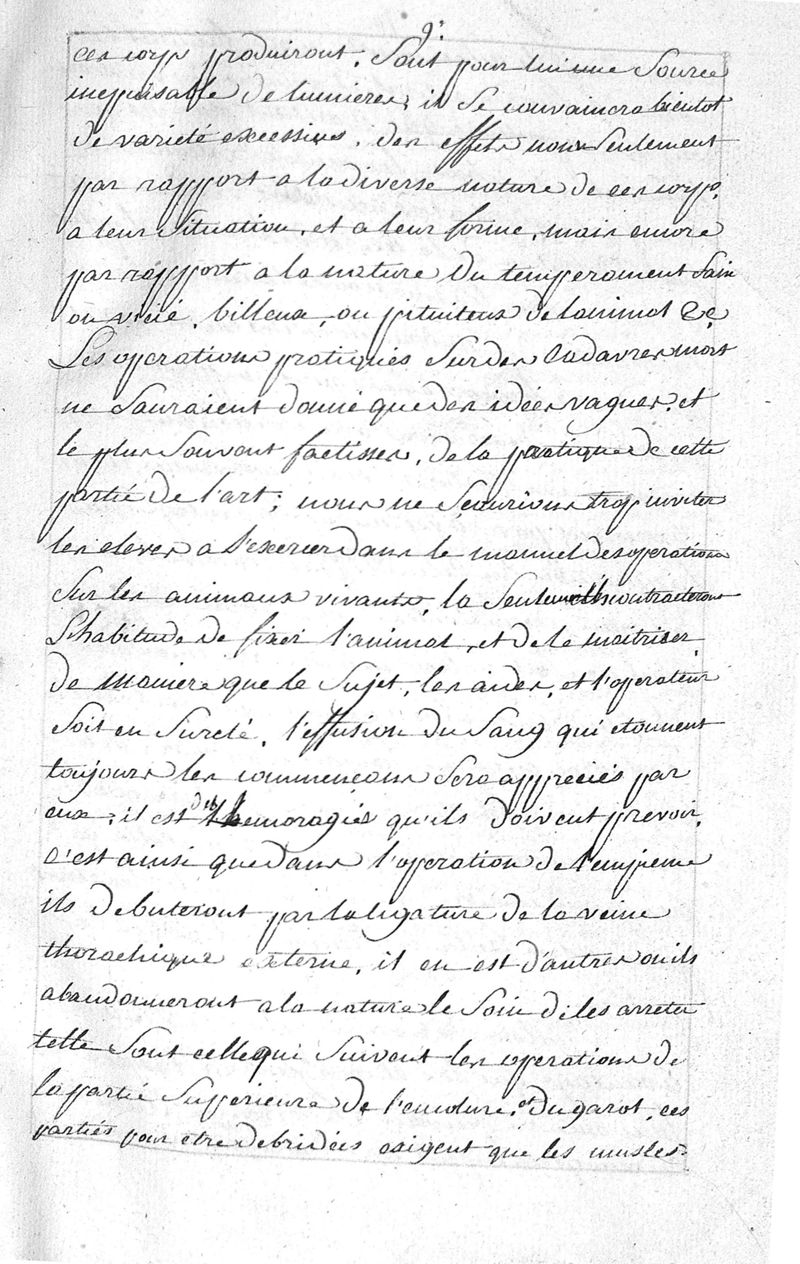 9.
ces corps produiront. Sont pour lui une Source
inepuisable de lumieres, il Se convaincra bientot
de varieté excessives. des effets non Seulement
par rapport a la diverse nature de ces corps,
a leur Situation, et a leur forme, mais encore
par rapport a la nature du temperament Sain
ou vicié, billeux, ou pituiteux de lanimal &c
Les operations pratiqués Sur des Cadavres mort
ne Sauraient donné que des idées vagues, et
le plus Souvant factisses, de la pratique de cette
partié de l'art; nous ne Sçaurions trop inviter
les eleves a S'exercer dans le manuel des operations
Sur les animaux vivants, la Seulement contracteront
L'habitude de fixer l'animal, et de le maitriser,
de maniere que le Sujet, les aides, et l'operateur
Soit en Sureté, l'effusion du Sang qui etonnent
toujours les commencons Sera appreciés par
eux; il est des hemoragiés qu'ils doivent prevoir,
c'est ainsi que dans l'operation de l'empieme
ils debuteront par la ligature de la veine
thorachique externe, il en est d'autres ou ils
abandonneront a la nature le Soin de les arreter
telle Sont celle qui Suivent les operations de
la partié Superieure de l'encolure, et du garot, ces
partiés pour etre debridées exigent que les muscles